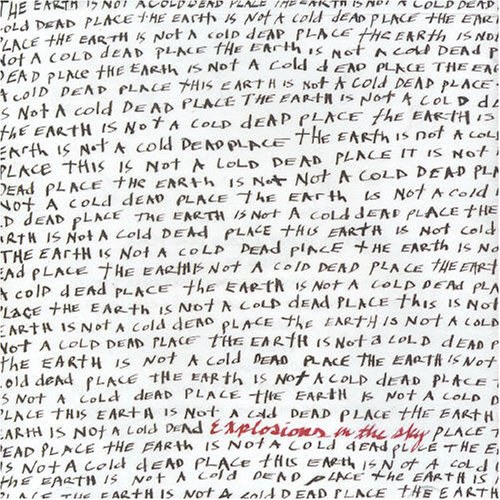 THE EARTH IS NOT A COLD DEAD PLACE THE EARTH IS NOT A COLD DEAD
COLD DEAD PLACE tHE EARTH IS NOT A COLD DEAD PLACE tHE EARt
PLACE tHE EARTH IS NOt A COLD DEAD PLACE tHE EARTH IS NO
NOT A COLD DEAD PLACE tHE EARTH IS NOt A COLD DEAD P
DEAD PLACE tHE EARTH IS NOT A COLD dEAD PLACE THE EA
A COLD DEAD PLACE tHIS EARTH IS NOt A COLD DEAD PLACE
S NOt A COLD DEAD PLACE THE EARTH IS NOt A COLD d
tHE EARTH IS NOT A COLD DEAD PLACE tHE EARTH IS
EARth IS NOt A COLD DEADPLACE tHE EARth IS NOt A COL
PLACE THIS IS NOt A COLD DEAD PLACE IT IS NOt
DEAD PLACE tHE EARTH IS NOt NOt A COLD DEAD PLA
NOt A COLD DEAD PLACE THE EARTH IS NOt A COLD
D DEAD PLACE THE EARTH IS NOT A COLD DEAD PLACE tHE
RTH IS NOt A COLD DEAD PLACE tHIS EARTH IS NOt COLD
THE EARTH IS NOT A COLD DEAD PLACE tHE EARTH IS NO
EAD PLACE tHE EARTH IS NOT A COLD DEAD PLACE tHE EART
A COLD dEAD PLACE tHE EARTH IS NOt A COLD DEAD PLA
PLACE tHE EARTH IS NOT A COLD DEAD PLACE tHIS IS NOt
EARTH IS NOT A COLD dEAD PLACE tHE EARTH IS NOT A COLD
NOT A COLD DEAD PLACE tHE EARTH IS NOT A COLD DEAD P
tHE EARTH IS NOt A COLD DEAD PLACE tHE EARTH IS NOT
OLd dead PLACE tHE EARTH IS NOt A COLD DEAD PLACE
S NOT A COLD DEAD PLACE tHE EARTH IS NOT A COLD D
PLACE THIS EARTH IS NOt A COLD DEAD PLACE tHE EARTH
EARTH IS NOT A COLD DEAD Explosions in the sky PLACE T
DEAD PLACE THE EARTH IS NOT A COLD dEAD PLACE THE E
IS NOT A COLD DEAD PLACE tHIS EARTH IS NOt A COLD
tHE EARTH IS NOT A COLD DEAD PLACE tHE EARTH IS N
PLACE tHE EARTH IS NOT A COLD DEAD PLACE THE EART